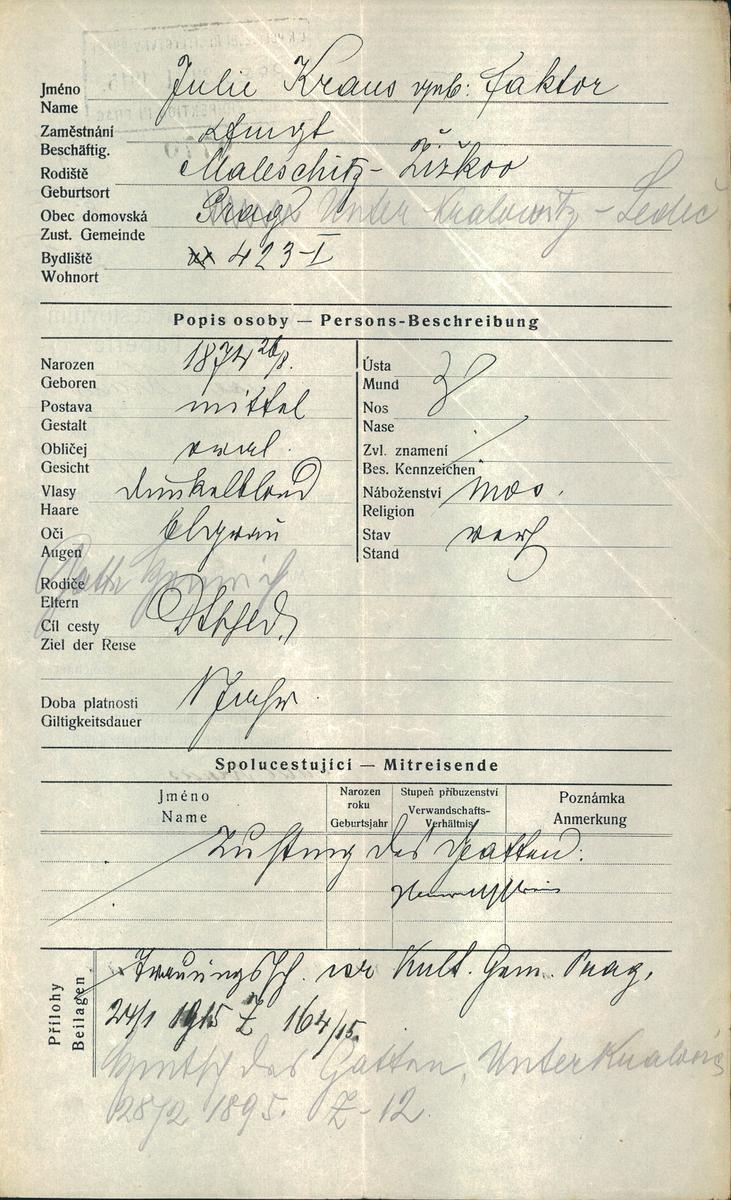 Jméno
Name Julie Kraus geb: Faktor
Zaměstnání
Beschäftig.
Rodiště Maleschitz - Žižkov
Geburtsort
Obec domovská Prag Unter Kralowitz - Ledeč
Zust. Gemeinde
Bydliště 423-I
Wohnort
Popis osoby — Persons-Beschreibung
Narozen 1874 26/8.
Geboren
Postava mittel
Gestalt
Obličej oval.
Gesicht
Vlasy dunkelblond
Haare
Oči blgrau
Augen
Ústa
Mund
Nos
Nase
Zvl. znamení
Bes. Kennzeichen
Náboženství mos.
Religion
Stav verh
Stand
Rodiče Gatte Heinrich
Eltern
Cíl cesty Dtschld.
Ziel der Reise
Doba platnosti 1 Jahr
Giltigkeitsdauer
Spolucestující — Mitreisende
Jméno
Name
Narozen
roku
Geburtsjahr
Stupeň příbuzenství
Verwandschafts-
Verhältnis
Poznámka
Anmerkung
Zustimg des Gatten:
Přílohy
Beilagen
Trauungssch. isr Kult. Gem. Prag.
24/1 1915 Z 164/15.
Hmtsch des Gatten, Unter Kralovic
28/2 1895. Z-12.